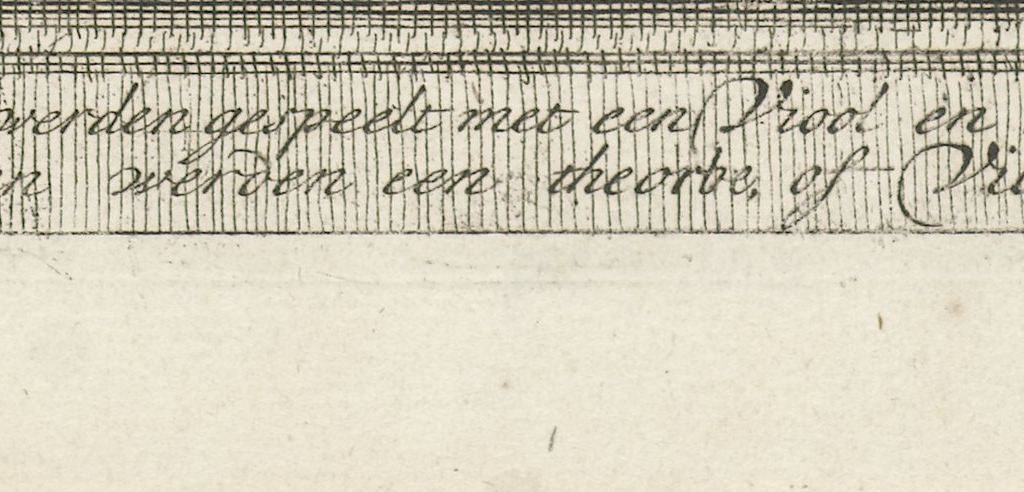 werden gespeelt met een Viool en
werden een theorbe, of